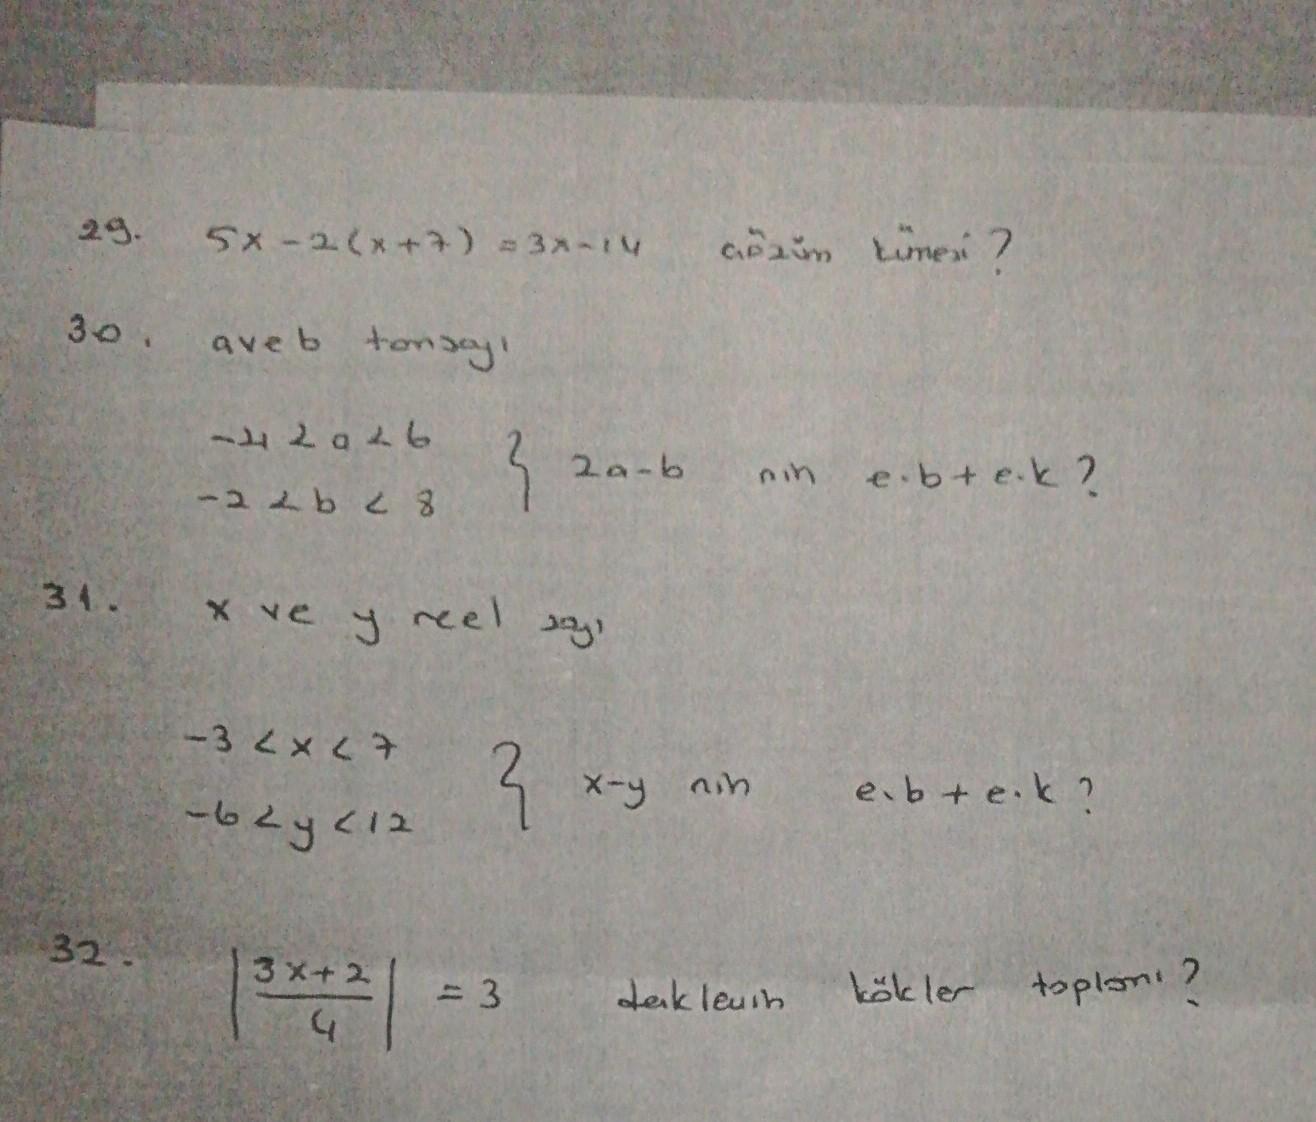 29. 5x-2(x+7)=3x-14 çözüm kümesi?
30. a ve b tamsayı
-4<a<6
-2<b<8 } 2a-b nin e.b+e.k?
31. x ve y reel sayı
-3<x<7
-6<y<12 } x-y nin e.b+e.k?
32. |3x+2/4| = 3 denklemin kökler toplamı?